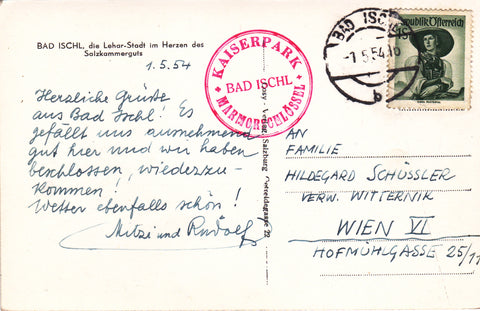 BAD ISCHL, die Lehar-Stadt im Herzen des
Salzkammerguts
1.5.54
Herzliche Grüße
aus Bad Ischl! Es
gefällt uns ausnehmend
gut hier und wir haben
beschlossen, wiederzu-
kommen!
Wetter ebenfalls schön!
Mitzi und Rudolf
KAISERPARK
BAD ISCHL
MARMORSCHLÖSSEL
BAD ISCHL
-1.5.54.18
b
Republik Österreich
Verlag Salzburg
AN
FAMILIE
HILDEGARD SCHÜSSLER
VERW. WITTERNIK
WIEN VI
HOFMÜHLGASSE 25/11